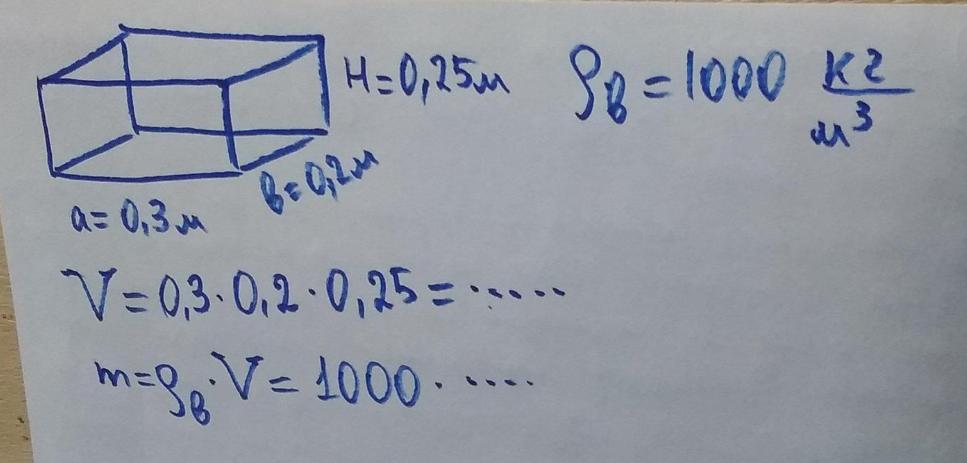 H=0,25м
ρв=1000 кг/м³
в=0,2м
a=0,3м
V=0,3·0,2·0,25=······
m=ρв·V=1000·····